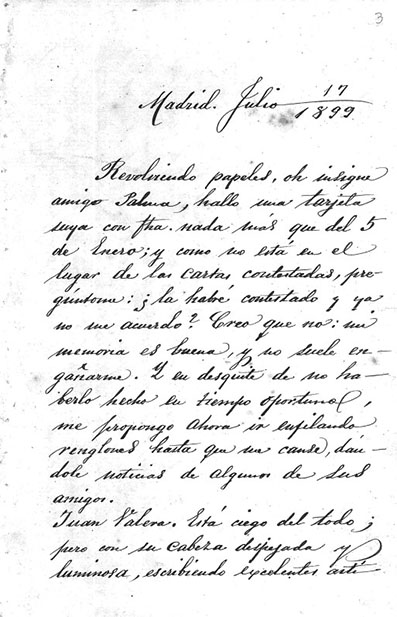 3
Madrid. Julio 17/1899
Revolviendo papeles, oh insigne
amigo Palma, hallo una tarjeta
suya con fha. nada más que del 5
de Enero; y como no está en el
lugar de las cartas contestadas, pre-
gúntome: ¿la habré contestado y ya
no me acuerdo? Creo que no: mi
memoria es buena, y no suele en-
gañarme. Y en desquite de no ha-
berlo hecho en tiempo oportuno,
me propongo ahora ir enfilando
renglones hasta que me canse, dán-
dole noticias de algunos de sus
amigos.
Juan Valera. Está ciego del todo;
pero con su cabeza despejada y
luminosa, escribiendo excelentes artí-